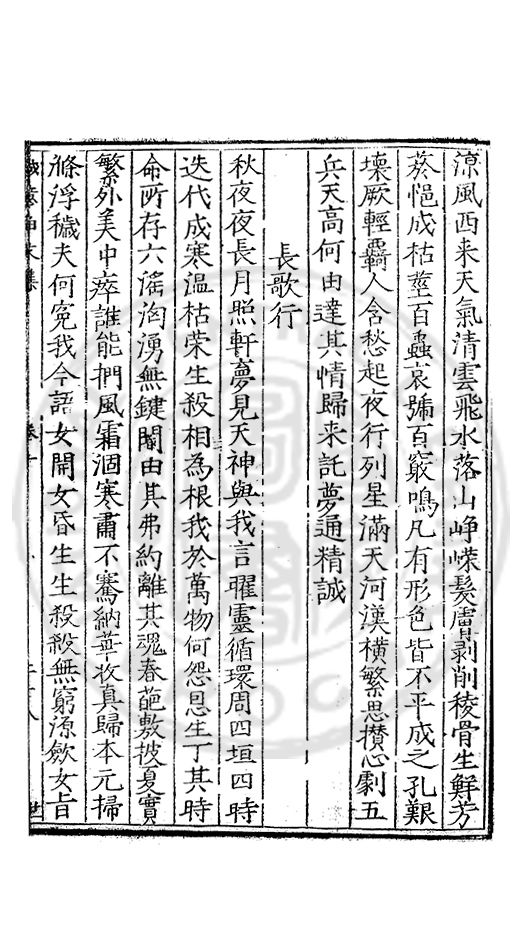 涼風西来天氣清雲飛水落山崢嶸髮膚剥削稜骨生鮮芳
菸悒成枯莖百蟲哀號百竅鳴凡有形色皆不平成之孔艱
壊厥輕覊人含愁起夜行列星滿天河漢橫繁思攅心劇五
兵天高何由達其情歸来託夢通精誠
長歌行
秋夜夜長月照軒夢見天神與我言曜靈循環周四垣四時
迭代成寒溫枯荣生殺相為根我於萬物何怨恩生丁其時
命所存六淫洶湧無鍵閽由其弗約離其魂春葩敷披夏實
繁外美中瘁誰能捫風霜涸寒肅不騫納華收真歸本元掃
滌浮穢夫何寃我今語女開女昏生生殺殺無窮源歛女㫖